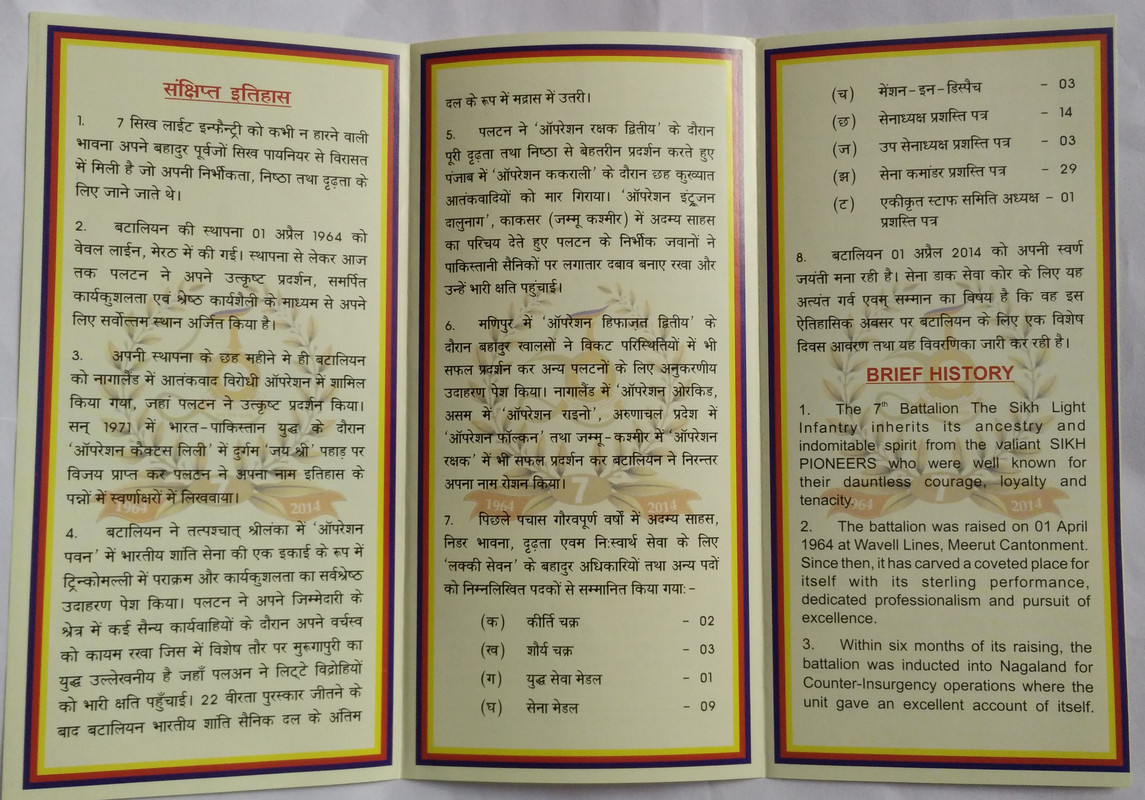 संक्षिप्त इतिहास
1. 7 सिख लाईट इन्फैन्ट्री को कभी न हारने वाली
भावना अपने बहादुर पूर्वजों सिख पायनियर से विरासत
में मिली है जो अपनी निर्भीकता, निष्ठा तथा दृढ़ता के
लिए जाने जाते थे।
2. बटालियन की स्थापना 01 अप्रैल 1964 को
वेवल लाईन, मेरठ में की गई। स्थापना से लेकर आज
तक पलटन ने अपने उत्कृष्ट प्रदर्शन, समर्पित
कार्यकुशलता एवं श्रेष्ठ कार्यशैली के माध्यम से अपने
लिए सर्वोत्तम स्थान अर्जित किया है।
3. अपनी स्थापना के छह महीने मे ही बटालियन
को नागालैंड में आतंकवाद विरोधी ऑपरेशन में शामिल
किया गया, जहां पलटन ने उत्कृष्ट प्रदर्शन किया।
सन् 1971 में भारत-पाकिस्तान युद्ध के दौरान
'ऑपरेशन कैक्टस लिली' में दुर्गम 'जय श्री' पहाड़ पर
विजय प्राप्त कर पलठन ने अपना नाम इतिहास के
पन्नों में स्वर्णाक्षरों में लिखवाया।
4. बटालियन ने तत्पश्चात् श्रीलंका में 'ऑपरेशन
पवन' में भारतीय शांति सेना की एक इकाई के रूप में
ट्रिन्कोमल्ली में पराक्रम और कार्यकुशलता का सर्वश्रेष्ठ
उदाहरण पेश किया। पलटन ने अपने जिम्मेदारी के
श्रेत्र में कई सैन्य कार्यवाहियों के दौरान अपने वर्चस्व
को कायम रखा जिस में विशेष तौर पर मुरूगापुरी का
युद्ध उल्लेखनीय है जहाँ पलअन ने लिट्टे विद्रोहियों
को भारी क्षति पहुँचाई। 22 वीरता पुरस्कार जीतने के
बाद बटालियन भारतीय शांति सैनिक दल के अंतिम
1964 7 2014
दल के रूप में मद्रास में उतरी।
5. पलटन ने 'ऑपरेशन रक्षक द्वितीय' के दौरान
पूरी दृढ़ता तथा निष्ठा से बेहतरीन प्रदर्शन करते हुए
पंजाब में 'ऑपरेशन ककराली' के दौरान छह कुख्यात
आतंकवादियों को मार गिराया। 'ऑपरेशन इंट्रूजन
दालुनाग', काकसर (जम्मू कश्मीर) में अदम्य साहस
का परिचय देते हुए पलटन के निर्भीक जवानों ने
पाकिस्तानी सैनिकों पर लगातार दबाव बनाए रखा और
उन्हें भारी क्षति पहुंचाई।
6. मणिपुर में 'ऑपरेशन हिफाज़त द्वितीय' के
दौरान बहादुर खालसों ने विकट परिस्थितियों में भी
सफल प्रदर्शन कर अन्य पलटनों के लिए अनुकरणीय
उदाहरण पेश किया। नागालैंड में 'ऑपरेशन ओरकिड,
असम में 'ऑपरेशन राइनो', अरुणाचल प्रदेश में
'ऑपरेशन फॉल्कन' तथा जम्मू-कश्मीर में 'ऑपरेशन
रक्षक' में भी सफल प्रदर्शन कर बटालियन ने निरन्तर
अपना नाम रोशन किया।
1964 7 2014
7. पिछले पचास गौरवपूर्ण वर्षो में अदम्य साहस,
निडर भावना, दृढ़ता एवम नि:स्वार्थ सेवा के लिए
'लक्की सेवन' के बहादुर अधिकारियों तथा अन्य पदों
को निम्नलिखित पदकों से सम्मानित किया गया:-
(क) कीर्ति चक्र - 02
(ख) शौर्य चक्र - 03
(ग) युद्ध सेवा मेडल - 01
(घ) सेना मेडल - 09
(च) मेंशन-इन-डिस्पैच - 03
(छ) सेनाध्यक्ष प्रशस्ति पत्र - 14
(ज) उप सेनाध्यक्ष प्रशस्ति पत्र - 03
(झ) सेना कमांडर प्रशस्ति पत्र - 29
(ट) एकीकृत स्टाफ समिति अध्यक्ष - 01
प्रशस्ति पत्र
8. बटालियन 01 अप्रैल 2014 को अपनी स्वर्ण
जयंती मना रही है। सेना डाक सेवा कोर के लिए यह
अत्यंत गर्व एवम् सम्मान का विषय है कि वह इस
ऐतिहासिक अबसर पर बटालियन के लिए एक विशेष
दिवस आवरण तथा यह विवरणिका जारी कर रही है।
BRIEF HISTORY
1. The 7th Battalion The Sikh Light
Infantry inherits its ancestry and
indomitable spirit from the valiant SIKH
PIONEERS who were well known for
their dauntless courage, loyalty and
tenacity.
1964 7 2014
2. The battalion was raised on 01 April
1964 at Wavell Lines, Meerut Cantonment.
Since then, it has carved a coveted place for
itself with its sterling performance,
dedicated professionalism and pursuit of
excellence.
3. Within six months of its raising, the
battalion was inducted into Nagaland for
Counter-Insurgency operations where the
unit gave an excellent account of itself.